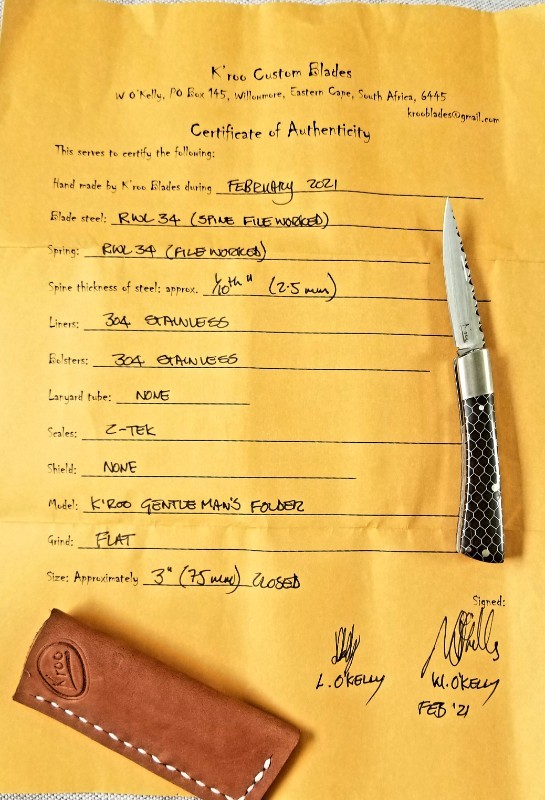 K'roo Custom Blades
W O'Kelly, PO Box 145, Willowmore, Eastern Cape, South Africa, 6445
krooblades@gmail.com
Certificate of Authenticity
This serves to certify the following:
Hand made by K'roo Blades during FEBRUARY 2021
Blade steel: RWL 34 (SPINE FILEWORKED)
Spring: RWL 34 (FILEWORKED)
Spine thickness of steel: approx. 1/10th " (2.5 mm)
Liners: 304 STAINLESS
Bolsters: 304 STAINLESS
Lanyard tube: NONE
Scales: C-TEK
Shield: NONE
Model: K'ROO GENTLEMAN'S FOLDER
Grind: FLAT
Size: Approximately 3" (75 mm) CLOSED
Signed:
L. O'KELLY W. O'KELLY
FEB '21
K'roo
K'roo